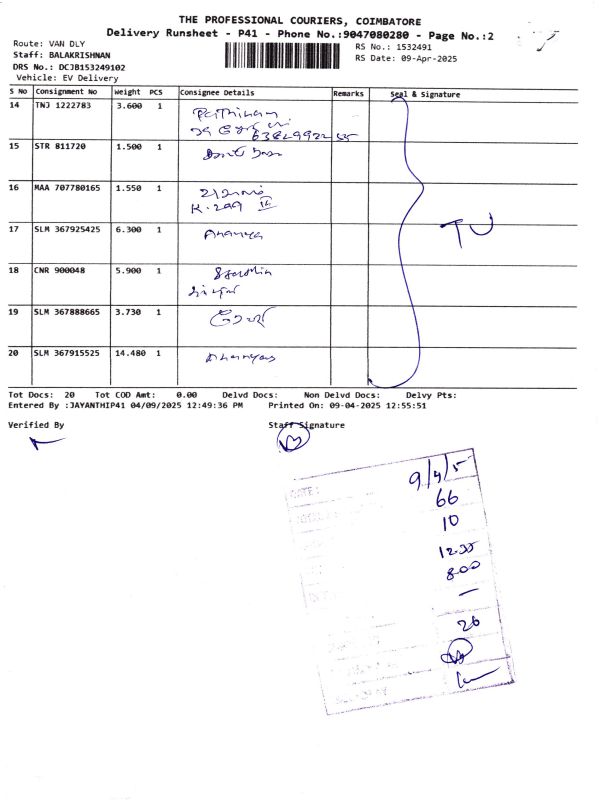 THE PROFESSIONAL COURIERS, COIMBATORE
Delivery Runsheet - P41 - Phone No.:9047080280 - Page No.:2
Route: VAN DLY
Staff: BALAKRISHNAN
DRS No.: DCJB153249102
Vehicle: EV Delivery
RS No.: 1532491
RS Date: 09-Apr-2025
S No Consignment No Weight PCS Consignee Details Remarks Seal & Signature
14 TNJ 1222783 3.600 1
15 STR 811720 1.500 1
16 MAA 707780165 1.550 1
K-299
17 SLM 367925425 6.300 1 Ananya
18 CNR 900048 5.900 1
19 SLM 367888665 3.730 1
20 SLM 367915525 14.480 1
TU
Tot Docs: 20 Tot COD Amt: 0.00 Delvd Docs: Non Delvd Docs: Delvy Pts:
Entered By :JAYANTHIP41 04/09/2025 12:49:36 PM Printed On: 09-04-2025 12:55:51
Verified By Staff Signature
DATE: 9/4/5
66
10
12.55
8.00
—
26